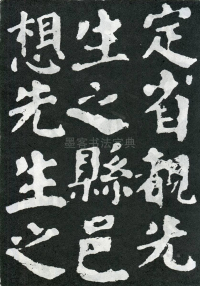 定省觀先
生之縣邑
想先生之
墨客书法字典